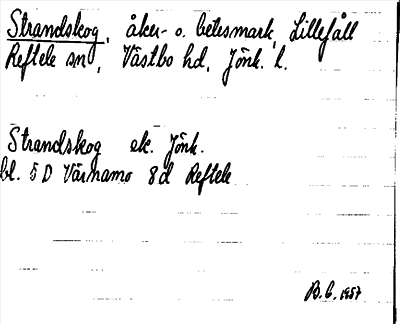 Strandskog, åker- o. betesmark, Lillefåll
Reftele sn, Västbo hd, Jönk. l.
Strandskog ek. Jönk.
bl. 5 D Värnamo 8d Reftele
B.G. 1957